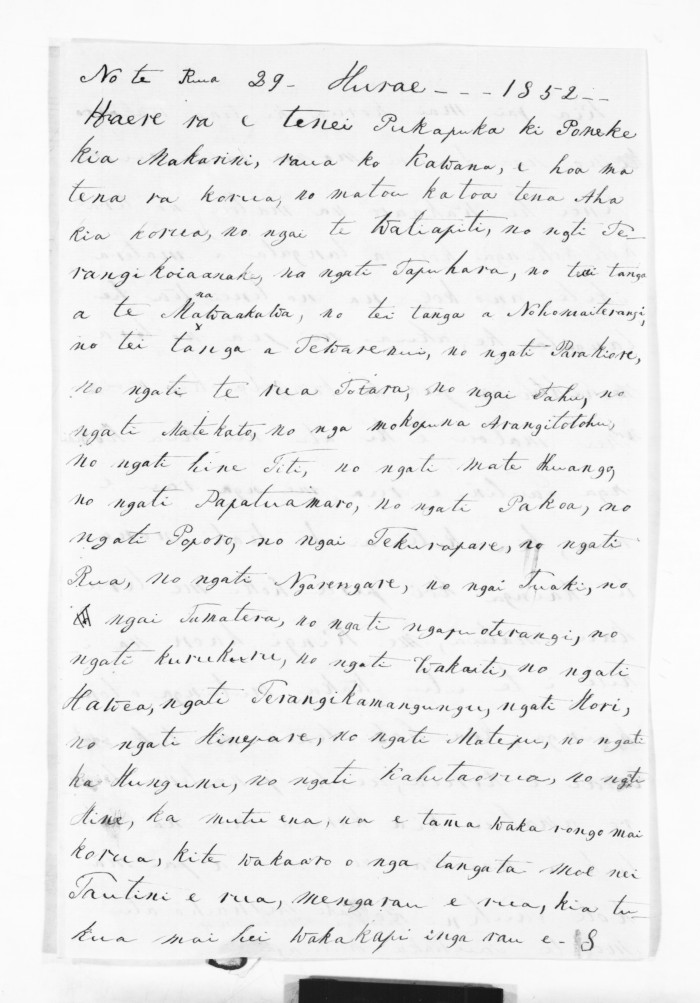 No te Rua 29 - Hurae - - - 1852 - -
Haere ra e tenei Pukapuka ki Poneke
kia Makarini, raua ko Kawana, e hoa ma
tena ra korua, no matou katoa tena Aha
kia korua, no ngai te Watiapiti, no ngti Te-
rangikoiaanake, na ngati Tapuhara, no tei tanga
a te Manawaakawa, no tei tanga a Nohomaiterangi,
no tei tanga a Tewarenui, no ngati Parakiore,
no ngati te rua Totara, no ngai Tahu, no
ngati Matekato, no nga mokopuna Arangitotohu,
no ngati hine Titi, no ngati mate Huango,
no ngati Papatuamaro, no ngati Pakoa, no
ngati Poporo, no ngai Tekurapare, no ngati
Rua, no ngati Ngarengare, no ngai Tuaki, no
ngai Tumatera, no ngati ngapuoterangi, no
ngati kurukuru, no ngati Wakaiti, no ngati
Hawea, ngati Terangikamangungu, ngati Hori,
no ngati Hinepare, no ngati Matepu, no ngati
ka Hungunu, no ngati Kahutaorua, no ngti
Hine, ka mutu ena, na e tama waka rongo mai
korua, kite wakaaro o nga tangata moe nei
Tautini e rua, mengarau e rua, kia tu-
kua mai hei wakakapi inga rau e - 8